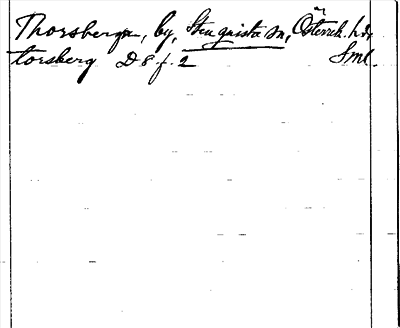 Thorsberga, by, Stenqvista sn, Österrek. hd,
torsberg D 8 f. 2 Sml.